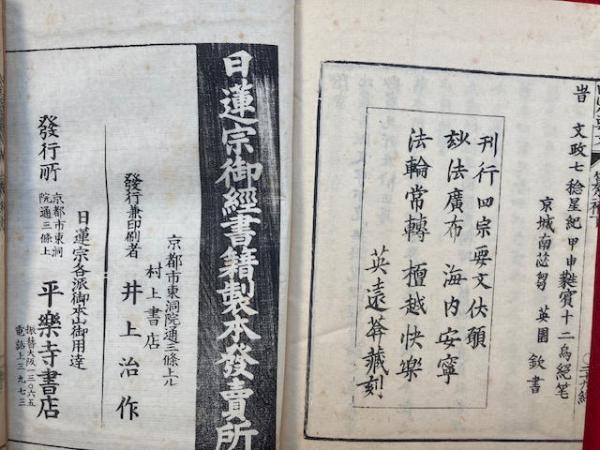 旹 文政七稔星紀甲申蕤賓十二烏絕笔
京城南苾芻 英園 欽書
刊行四宗要文伏願
玅法廣布 海内安寧
法輪常轉 檀越快樂
英遠峯藏刻
日蓮宗御經書籍製本發賣所
京都市東洞院通三條上ル
村上書店
發行兼印刷者 井上治作
日蓮宗各派御本山御用達
發行所 京都市東洞院通三條上 平樂寺書店
振替大阪一三〇六五
電話上三九七三